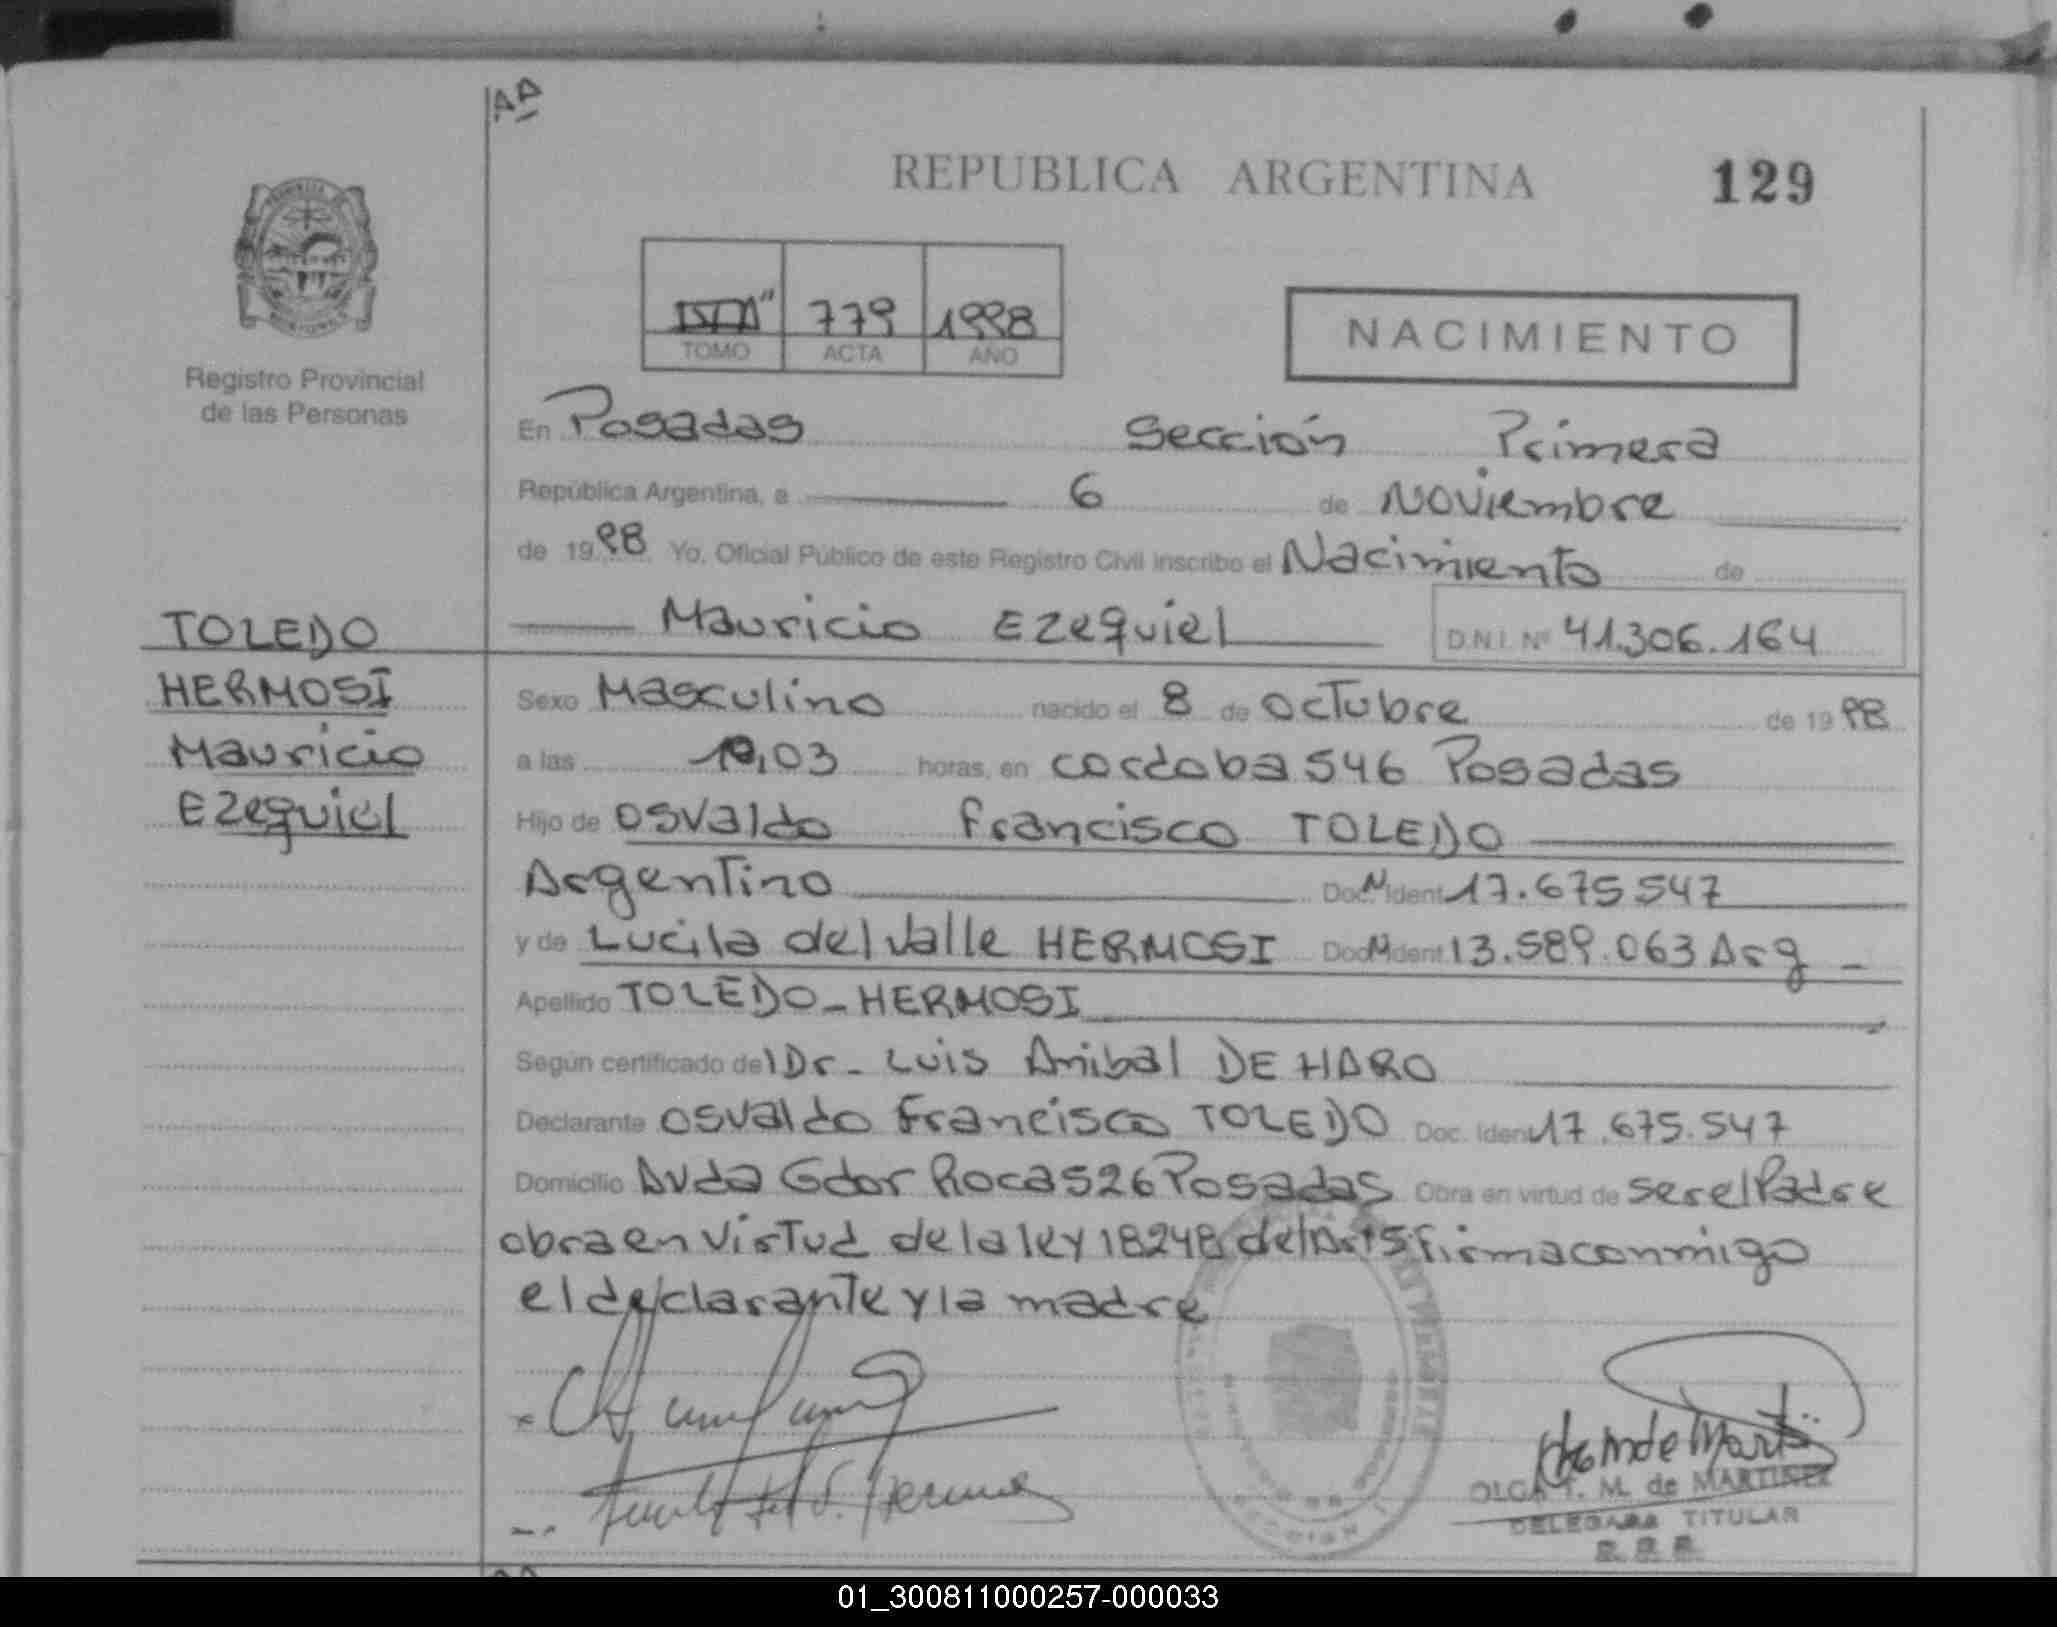 AA
REPUBLICA ARGENTINA 129
779 1998
TOMO ACTA AÑO
NACIMIENTO
Registro Provincial
de las Personas
En Posadas Sección Primera
República Argentina, a 6 de Noviembre
de 1998 Yo, Oficial Público de este Registro Civil inscribo el Nacimiento de
Mauricio Ezequiel D.N.I. Nº 41.306.164
TOLEDO
HERMOSI
Mauricio
Ezequiel
Sexo Masculino nacido el 8 de Octubre de 1998
a las ,03 horas, en cordoba 546 Posadas
Hijo de Osvaldo Francisco TOLEDO
Argentino Doc. N Ident 17.675547
y de Lucila del Valle HERMOSI Doc M Ident 13.589.063 Arg
Apellido TOLEDO-HERMOSI
Según certificado del Dr- Luis Anibal DE HARO
Declarante Osvaldo Francisco TOLEDO Doc. Ident 17.675.547
Domicilio Avda Gdor Roca 526 Posadas Obra en virtud de ser el Padre
obra en virtud de la ley 18248 del Art 5 firma conmigo
el declarante y la madre
OLGA T. M. de MARTINEZ
DELEGADA TITULAR
SECCION 1
01_300811000257-000033